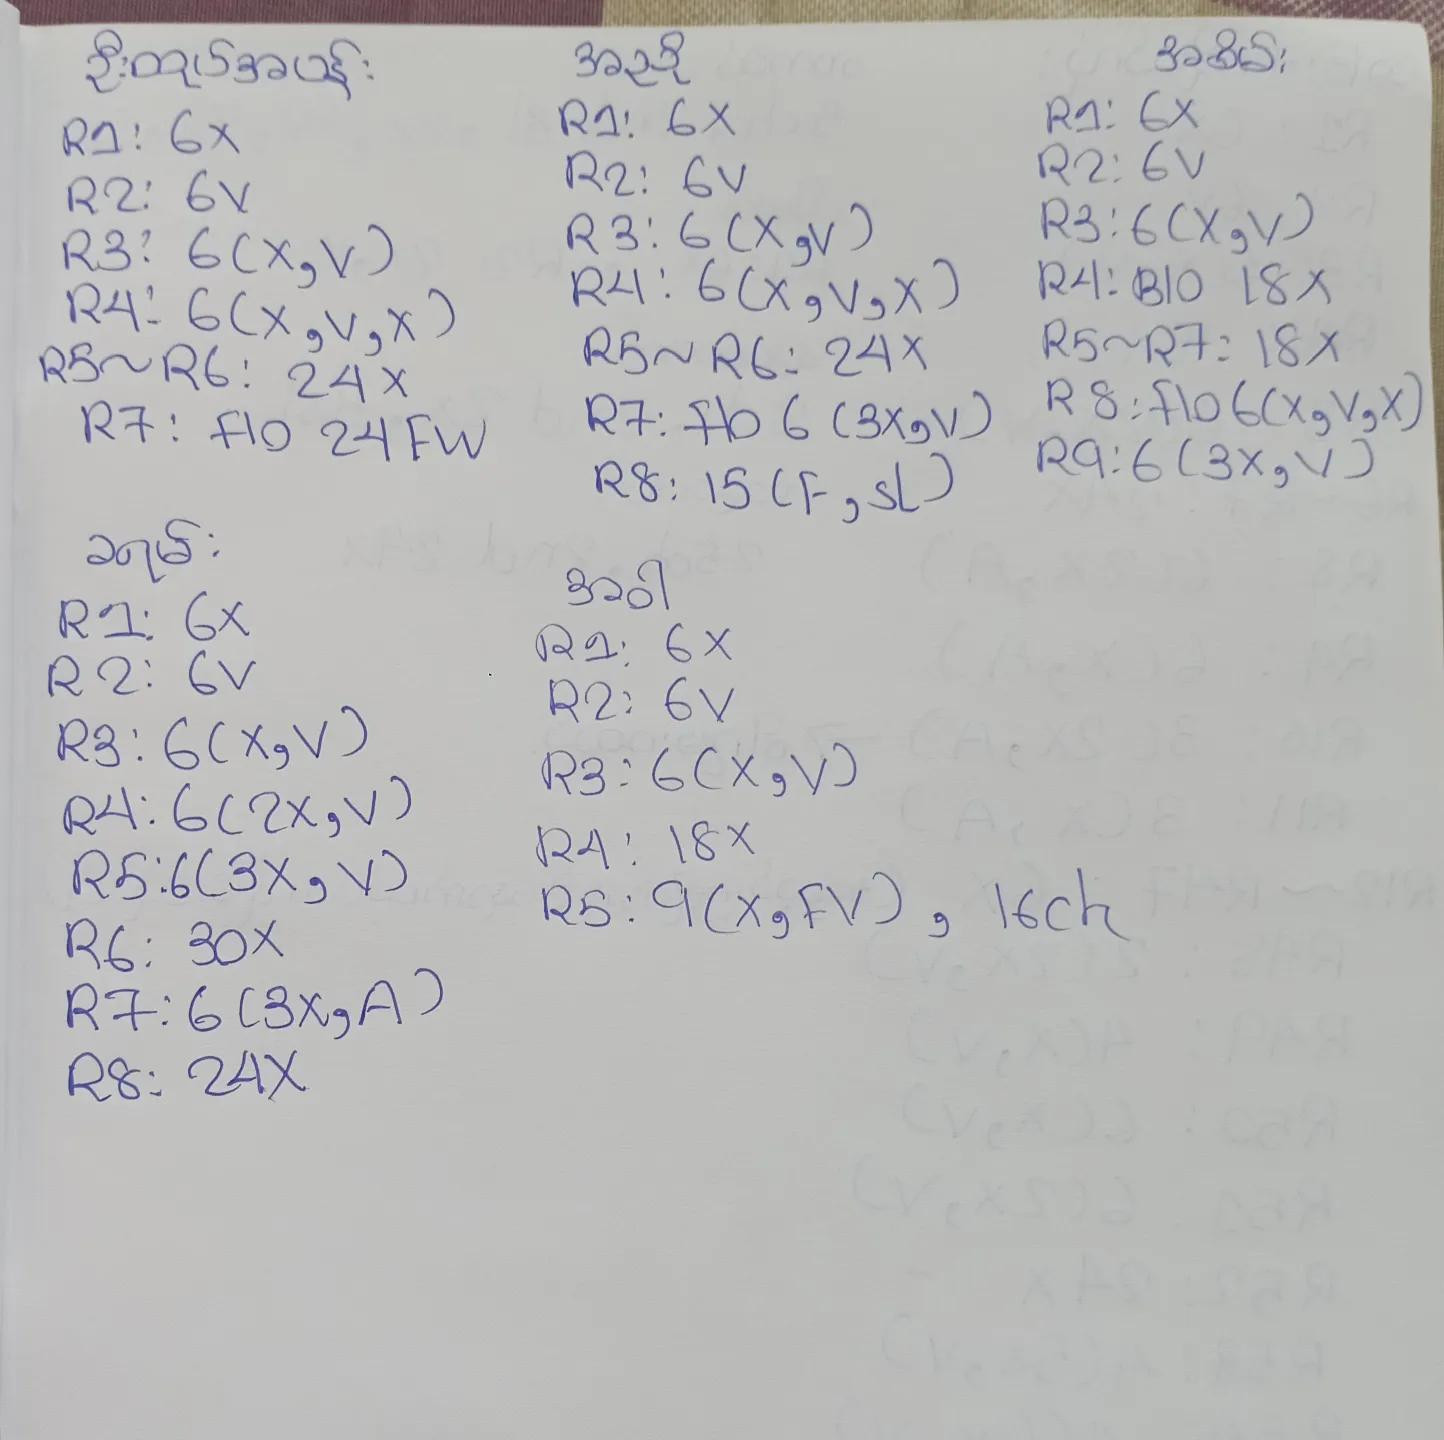 ဦးထုပ်အဟန်း
R1: 6x
R2: 6V
R3: 6(x,V)
R4: 6(x,V,x)
R5~R6: 24x
R7: flo 24FW
အညို
R1: 6x
R2: 6V
R3: 6(x,V)
R4: 6(x,V,x)
R5~R6: 24x
R7: flo 6(3x,V)
R8: 15(F,sl)
အစိမ်း
R1: 6x
R2: 6V
R3: 6(x,V)
R4: Blo 18x
R5~R7: 18x
R8: flo 6(x,V,x)
R9: 6(3x,V)
ခရမ်း
R1: 6x
R2: 6V
R3: 6(x,V)
R4: 6(2x,V)
R5: 6(3x,V)
R6: 30x
R7: 6(3x,A)
R8: 24x
အဝါ
R1: 6x
R2: 6V
R3: 6(x,V)
R4: 18x
R5: 9(x,FV), 16ch